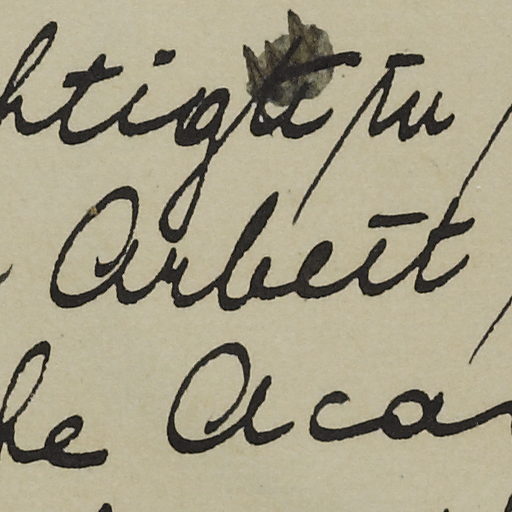 htigt, tu
Arbeit,
he Aca